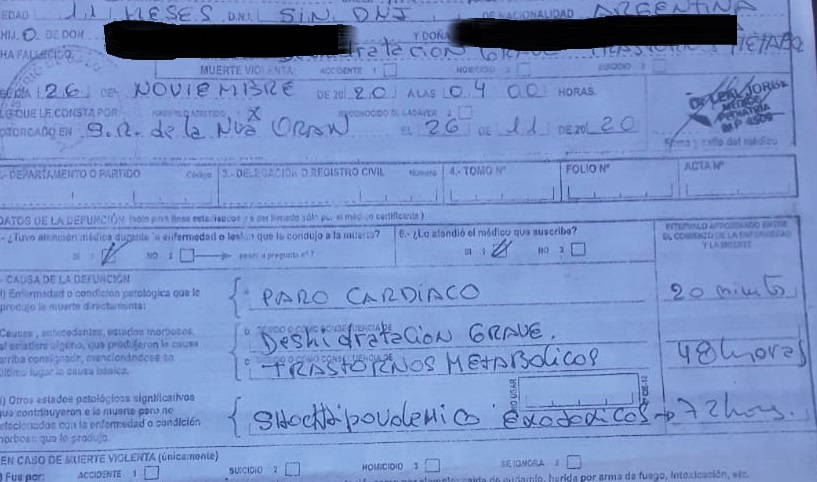 EDAD 11 MESES D.N.I. SIN DNI DE NACIONALIDAD ARGENTINA
HIJO DE DON Y DOÑA
HA FALLECIDO
MUERTE VIOLENTA: ACCIDENTE 1 HOMICIDIO 2 SUICIDIO 3
26 DE NOVIEMBRE DE 2020 A LAS 04 00 HORAS.
LO QUE LE CONSTA POR HABERLO ASISTIDO X RECONOCIDO EL CADAVER 2
OTORGADO EN S.R. de la Nva ORAN EL 26 DE 11 DE 2020
Dr. LEAL JORGE
MEDICO
PEDIATRIA
Firma y sello del médico
2.- DEPARTAMENTO O PARTIDO Código 3.- DELEGACIÓN O REGISTRO CIVIL Número 4.- TOMO Nº FOLIO Nº ACTA Nº
DATOS DE LA DEFUNCIÓN
.- ¿Tuvo atención médica durante la enfermedad o lesión que le condujo a la muerte? 6.- ¿Lo atendió el médico que suscribe?
SI 1 NO 2 pasar a pregunta nº 7 SI 1 NO 2
INTERVALO APROXIMADO ENTRE EL COMIENZO DE LA ENFERMEDAD Y LA MUERTE
.- CAUSA DE LA DEFUNCIÓN
I) Enfermedad o condición patológica que le produjo la muerte directamente:
a PARO CARDIACO 20 minutos
Causas, antecedentes, estados morbosos, si existiera alguno, que produjeron la causa arriba consignada, mencionándose en último lugar la causa básica.
b DEBIDO O COMO CONSECUENCIA DE
Deshidratacion GRAVE.
c DEBIDO O COMO CONSECUENCIA DE
TRASTORNOS METABOLICOS 48 horas
II) Otros estados patológicos significativos que contribuyeron a la muerte pero no relacionados con la enfermedad o condición morbosa que la produjo.
NO USAR
Shock Hipovolemico 72 hors.
EN CASO DE MUERTE VIOLENTA (únicamente)
Fue por: ACCIDENTE 1 SUICIDIO 2 HOMICIDIO 3 SE IGNORA
herida por arma de fuego, intoxicación, etc.